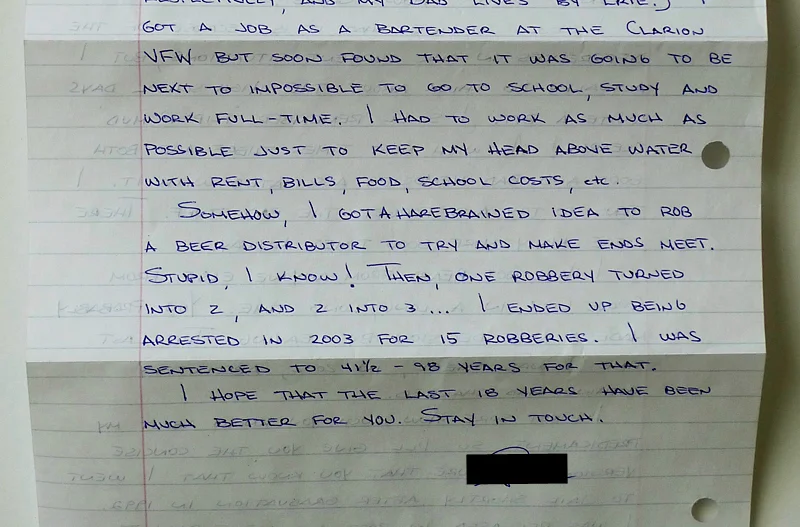 RESPECTIVELY, AND MY DAD LIVES BY ERIE.) I
GOT A JOB AS A BARTENDER AT THE CLARION
VFW BUT SOON FOUND THAT IT WAS GOING TO BE
NEXT TO IMPOSSIBLE TO GO TO SCHOOL, STUDY AND
WORK FULL-TIME. I HAD TO WORK AS MUCH AS
POSSIBLE JUST TO KEEP MY HEAD ABOVE WATER
WITH RENT, BILLS, FOOD, SCHOOL COSTS, etc.
SOMEHOW, I GOT A HAREBRAINED IDEA TO ROB
A BEER DISTRIBUTOR TO TRY AND MAKE ENDS MEET.
STUPID, I KNOW! THEN, ONE ROBBERY TURNED
INTO 2, AND 2 INTO 3... I ENDED UP BEING
ARRESTED IN 2003 FOR 15 ROBBERIES. I WAS
SENTENCED TO 41½ - 98 YEARS FOR THAT.
I HOPE THAT THE LAST 18 YEARS HAVE BEEN
MUCH BETTER FOR YOU. STAY IN TOUCH.